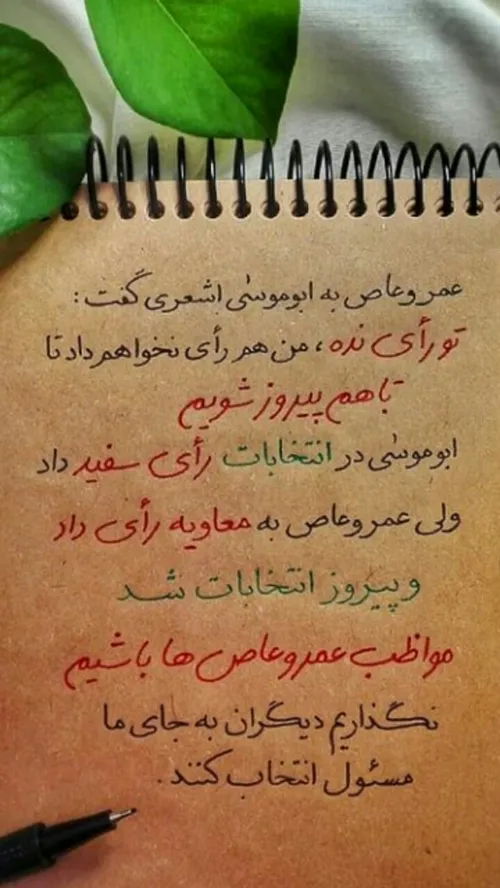 عمروعاص به ابوموسی اشعری گفت :
تو رأی نده ، من هم رأی نخواهم داد تا
باهم پیروز شویم
ابوموسی در انتخابات رأی سفید داد
ولی عمروعاص به معاویه رأی داد
و پیروز انتخابات شد
مواظب عمروعاص ها باشیم
نگذاریم دیگران به جای ما
مسئول انتخاب کنند .